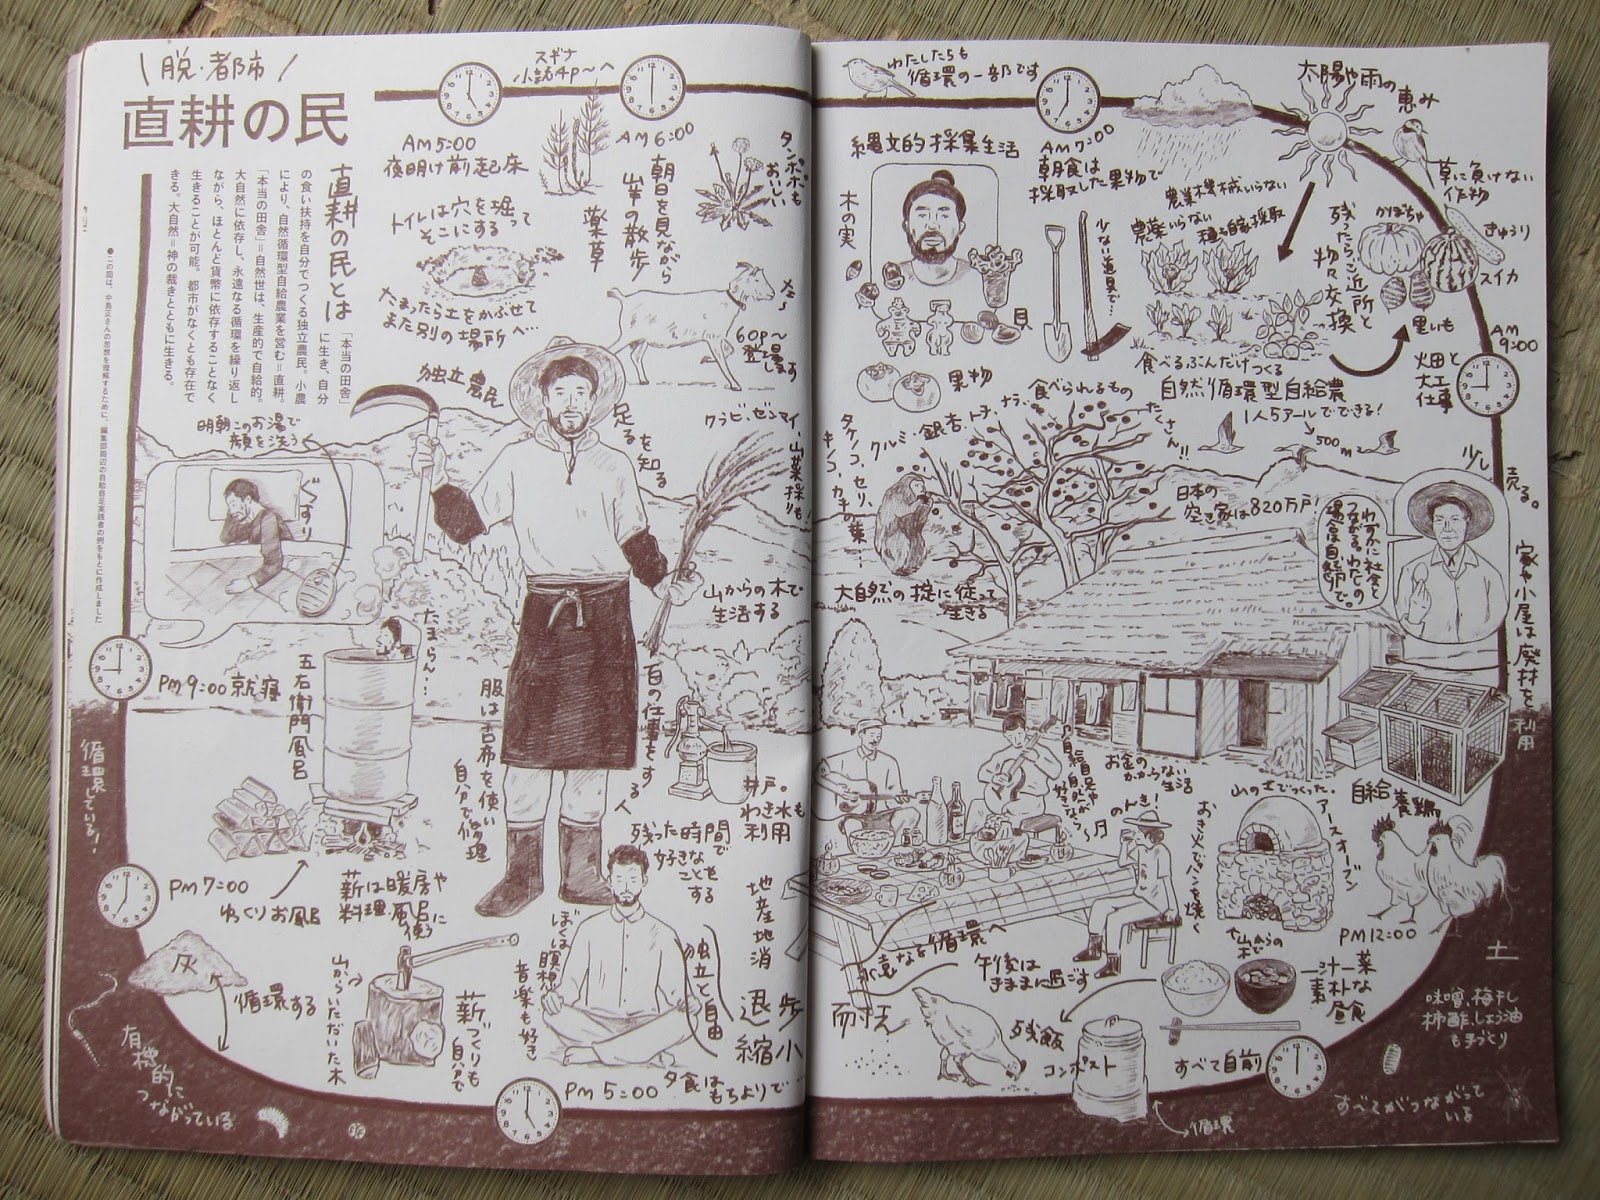 脱・都市
直耕の民
直耕の民とは
「本当の田舎」
に生き、自分
の食い扶持を自分でつくる独立農民。小農
により、自然循環型自給農業を営む=直耕。
「本当の田舎」=自然世は、生産的で自給的。
大自然に依存し、永遠なる循環を繰り返し
ながら、ほとんど貨幣に依存することなく
生きることが可能。都市がなくとも存在で
きる。大自然=神の裁きとともに生きる。
●この図は、中島正さんの思想を理解するために、編集部周辺の自給自足実践者の例をもとに作成しました
AM5:00
夜明け前起床
トイレは穴を掘って
そこにする
たまったら土をかぶせて
また別の場所へ…
スギナ
小誌4p〜へ
薬草
AM6:00
朝日を見ながら
山羊の散歩
タンポポも
おいしい
メェ〜
60p〜
登場します
独立農民
足るを知る
ワラビ、ゼンマイ、山菜採りも!
明朝このお湯で
顔を洗う
ぐっすり
山からの木で
生活する
たまらん…
五右衛門風呂
PM9:00就寝
服は古布を使い
自分で修理
百の仕事をする人
井戸。
わき水も
利用
残った時間で
好きな
ことをする
PM7:00
ゆっくりお風呂
薪は暖房や
料理・風呂に
灰
循環する
山からいただいた木
薪づくりも
自分で
ぼくは瞑想
音楽も好き
独立と自由
地産地消
退歩
縮小
PM5:00
夕食は
もちよりで…
循環している!
有機的に
つながっている
わたしたちも
循環の一部です
縄文的採集生活
木の実
貝
AM7:00
朝食は
採取した果物で
少ない道具で…
太陽や雨の恵み
農業機械いらない
農薬いらない
種も自家採取
残ったらご近所と
物々交換
草に負けない
作物
かぼちゃ
きゅうり
スイカ
里いも
AM
9:00
畑と
大工
仕事
果物
食べるぶんだけつくる
自然循環型自給農
1人5アールでできる!
500m
食べられるもの
たくさん!!
タケノコ、セリ、
キノコ、カキの葉…
クルミ・銀杏・トチ・ナラ、
大自然の掟に従って
生きる
日本の
空き家は820万戸!
少し
売る。
わずかに社会と
つながる。わたしの
場合は自然卵で。
家や小屋は廃材を利用
お金の
かからない
生活
のんき!
山の土でつくった。
アースオーブン
おき火でパンを焼く
山からの
木で
自給養鶏
PM12:00
一汁一菜
素朴な
昼食
すべて自前
永遠なる循環へ
午後は
きままに過ごす
残飯
コンポスト
循環
土
味噌、梅干し
柿酢、しょう油
も手づくり
すべてがつながって
いる